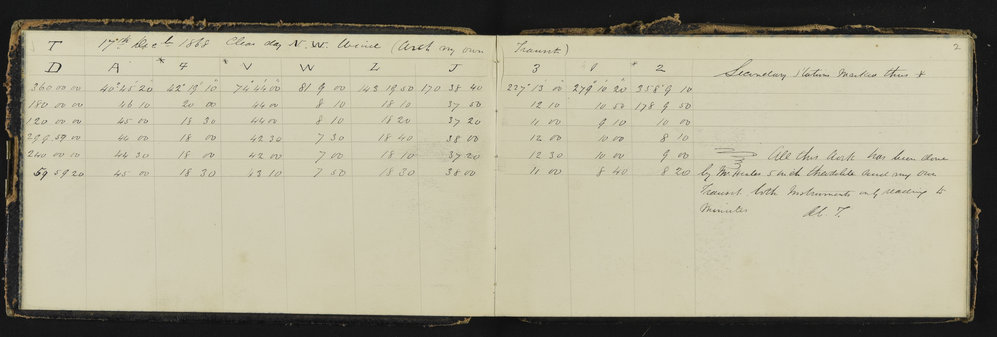 T 17th Decb 1868 Clear day N.W. Wind (with my own Transit) 2
D A *4 *V W L J 3 1 *2 Secondary Stations Marked thus *
360 00 00 40° 45' 20" 42° 19' 10" 74° 44' 00" 81 9 00 142 19 50 170 38 40 227° 13' 00" 279° 10' 20" 358° 9' 10"
180 00 00 46 10 20 00 44 00 8 10 18 10 37 50 12 10 10 50 178 9 50
120 00 00 45 00 18 30 44 00 8 10 18 20 37 20 11 00 9 10 10 00
299 59 00 44 00 18 00 42 30 7 30 18 40 38 00 12 00 10 00 8 10
240 00 00 44 30 18 00 42 00 7 00 18 10 37 20 12 30 10 00 9 00 All this work has been done
59 59 20 45 00 18 30 43 10 7 50 18 30 38 00 11 00 8 40 8 20 by Mr 5 inch theodolite and my own
Transit both Instruments only reading to
Minutes T.